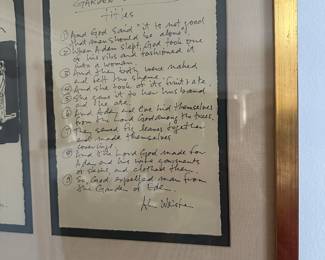 GARDEN
titles
① And God said "it is not good
that man should be alone"
② When Adam slept, God took one
of his ribs and fashioned it
into a woman.
③ And they both were naked
and felt no shame.
④ And she took of its fruit & ate
⑤ She gave it to her husband
and he ate.
⑥ And Adam and Eve hid themselves
from the Lord God among the trees.
⑦ They sewed fig leaves together
and made themselves
coverings.
⑧ And the Lord God made for
Adam and his wife garments
of skins and clothed them
⑨ So, God expelled man from
the Garden of Eden.